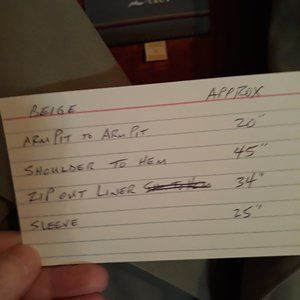 BEIGE APPROX
ARMPIT TO ARMPIT 20"
SHOULDER TO HEM 45"
ZIP OUT LINER 34"
SLEEVE 25"